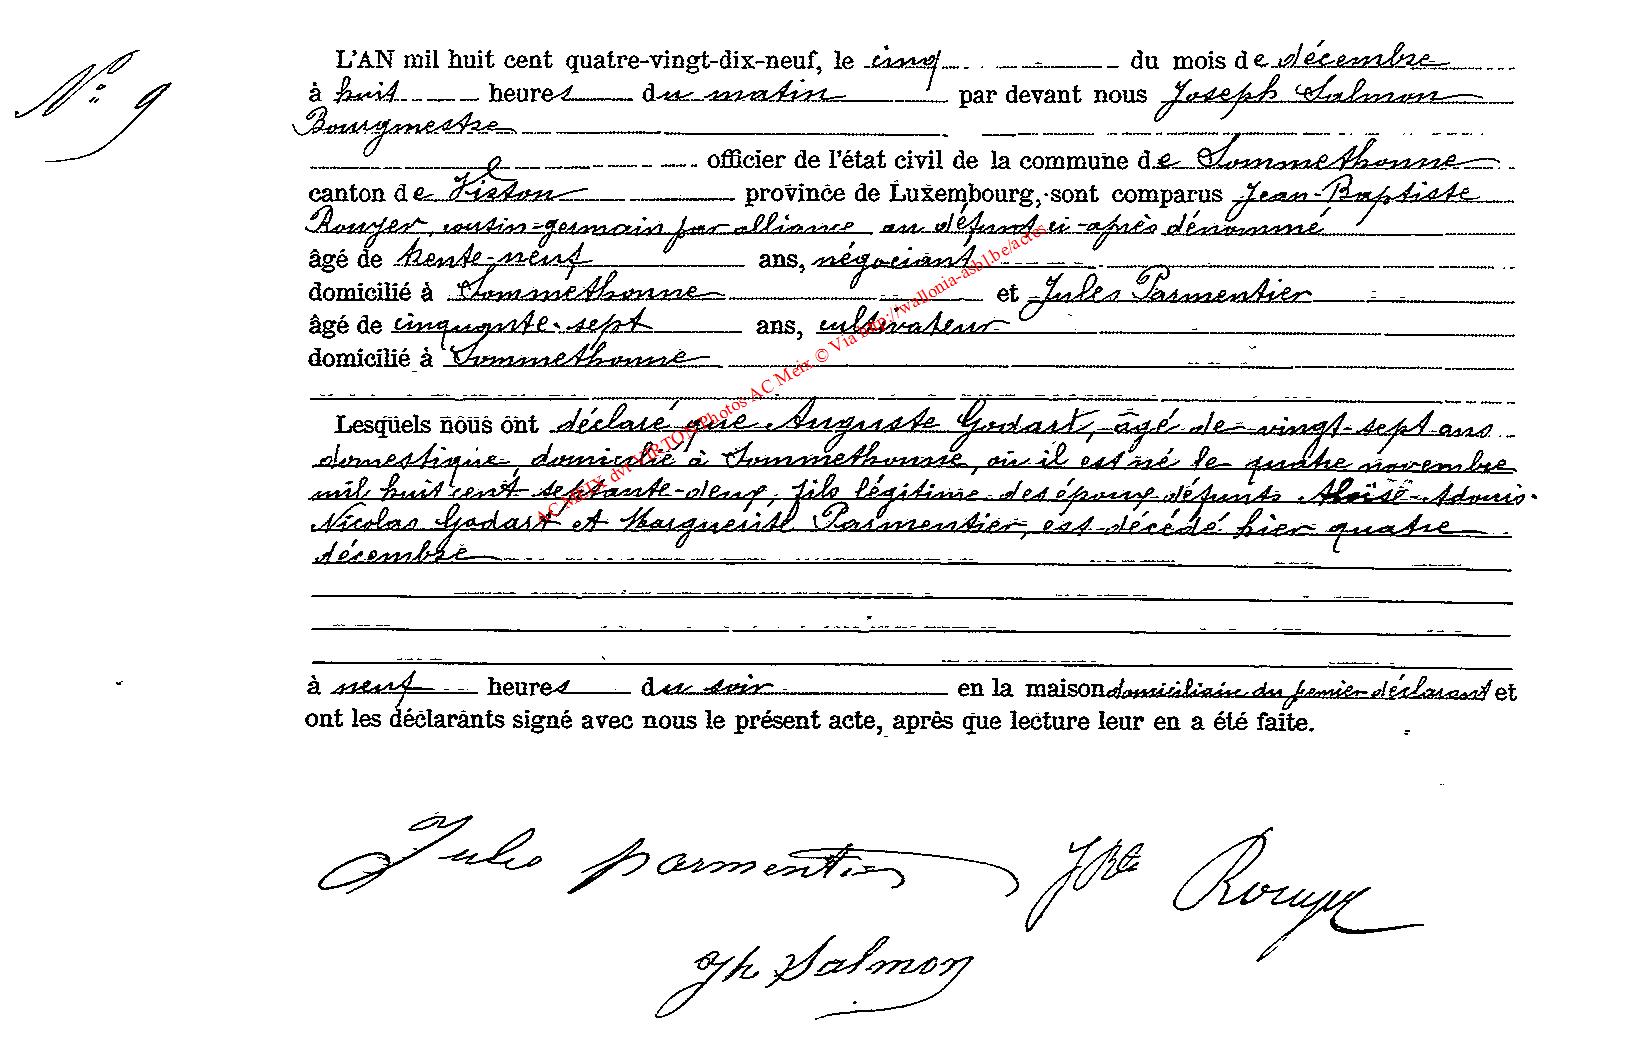 N° 9
L'AN mil huit cent quatre-vingt-dix-neuf, le cinq du mois de décembre
à huit heures du matin par devant nous Joseph Salmon
Bourgmestre
officier de l'état civil de la commune de Sommethonne
canton de Virton province de Luxembourg, sont comparus Jean-Baptiste
Rouyer, cousin-germain par alliance au défunt ci-après dénommé
âgé de trente-neuf ans, négociant
domicilié à Sommethonne et Jules Parmentier
âgé de cinquante-sept ans, cultivateur
domicilié à Sommethonne
Lesquels nous ont déclaré que Auguste Godart, âgé de vingt-sept ans
domestique, domicilié à Sommethonne, où il est né le quatre novembre
mil huit cent septante-deux, fils légitime des époux défunts Adonis-
Nicolas Godart et Marguerite Parmentier, est décédé hier quatre
décembre
à neuf heures du soir en la maison domiciliaire du premier déclarant et
ont les déclarants signé avec nous le présent acte, après que lecture leur en a été faite.
Jules Parmentier JBte Rouyer
Jh Salmon
AC MEIX dvt VIRTON Photos AC Meix © Via http://wallonia-asbl.be/actes